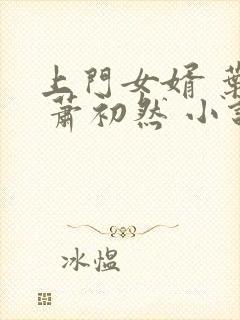 上門女婿 葉
蕭初然 小說
冰愠